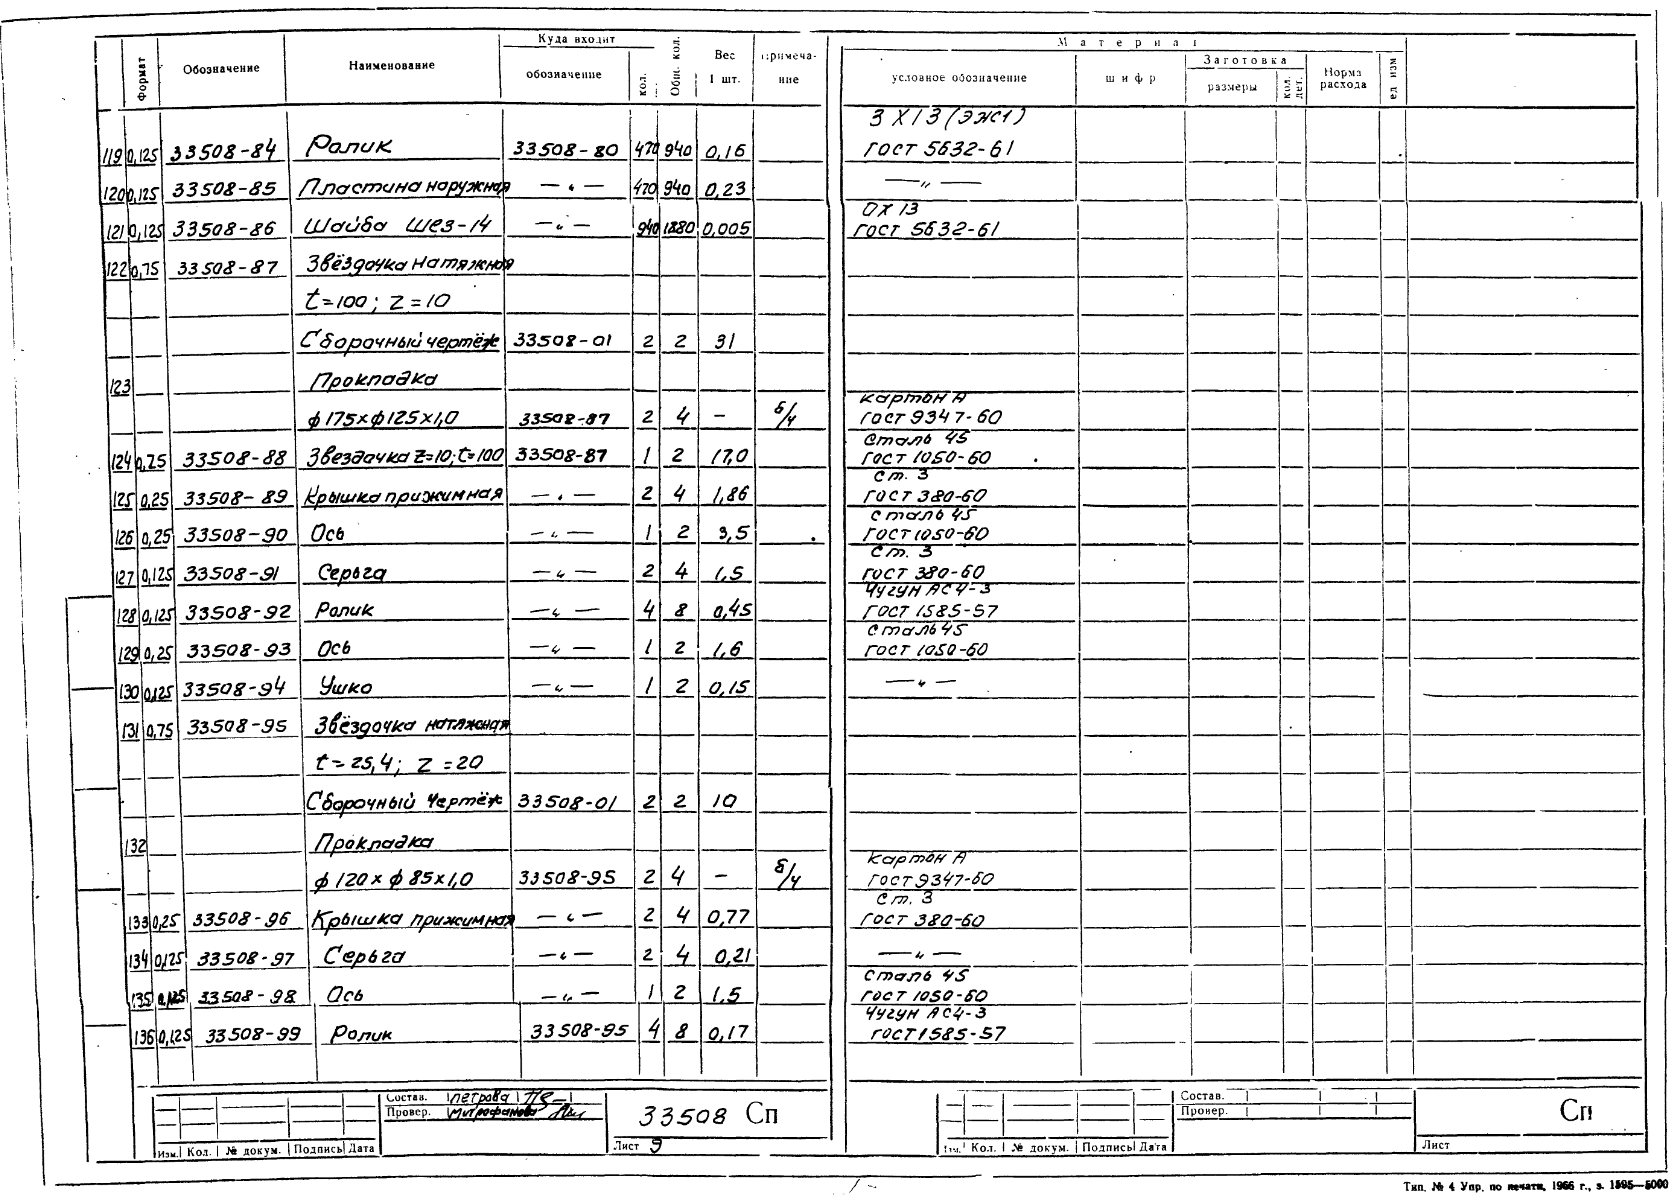 Формат | Обозначение | Наименование | Куда входит: обозначение | кол. | Общ. кол. | Вес 1 шт. | Примечание | Материал: условное обозначение | шифр | Заготовка: размеры | кол. дет. | Норма расхода | ед изм
3Х13 (ЭЖ1)
119 0,125 33508-84 Ролик 33508-80 470 940 0,16 ГОСТ 5632-61
120 0,125 33508-85 Пластина наружная —〃— 470 940 0,23 —〃—
ОХ13
121 0,125 33508-86 Шайба шез-14 —〃— 940 1880 0,005 ГОСТ 5632-61
122 0,75 33508-87 Звёздочка натяжная
t=100; z=10
Сборочный чертёж 33508-01 2 2 31
123 Прокладка
картон А
ф175×ф125×1,0 33508-87 2 4 – б/ч ГОСТ 9347-60
Сталь 45
124 0,25 33508-88 Звездочка z=10; t=100 33508-87 1 2 17,0 ГОСТ 1050-60
Ст. 3
125 0,25 33508-89 Крышка прижимная —〃— 2 4 1,86 ГОСТ 380-60
Сталь 45
126 0,25 33508-90 Ось —〃— 1 2 3,5 ГОСТ 1050-60
Ст. 3
127 0,125 33508-91 Серьга —〃— 2 4 1,5 ГОСТ 380-60
Чугун АСЧ-3
128 0,125 33508-92 Ролик —〃— 4 8 0,45 ГОСТ 1585-57
Сталь 45
129 0,25 33508-93 Ось —〃— 1 2 1,6 ГОСТ 1050-60
130 0,125 33508-94 Ушко —〃— 1 2 0,15 —〃—
131 0,75 33508-95 Звёздочка натяжная
t=25,4; z=20
Сборочный чертёж 33508-01 2 2 10
132 Прокладка
картон А
ф120×ф85×1,0 33508-95 2 4 – б/ч ГОСТ 9347-60
Ст. 3
133 0,25 33508-96 Крышка прижимная —〃— 2 4 0,77 ГОСТ 380-60
134 0,125 33508-97 Серьга —〃— 2 4 0,21 —〃—
Сталь 45
135 0,125 33508-98 Ось —〃— 1 2 1,5 ГОСТ 1050-60
Чугун АСЧ-3
136 0,125 33508-99 Ролик 33508-95 4 8 0,17 ГОСТ 1585-57
Состав. Петрова
Провер. Митрофанова
33508 Сп
Изм. Кол. № докум. Подпись Дата
Лист 9
Состав.
Провер.
Сп
Изм. Кол. № докум. Подпись Дата
Лист
Тип. № 4 Упр. по печати, 1966 г., з. 1595—5000